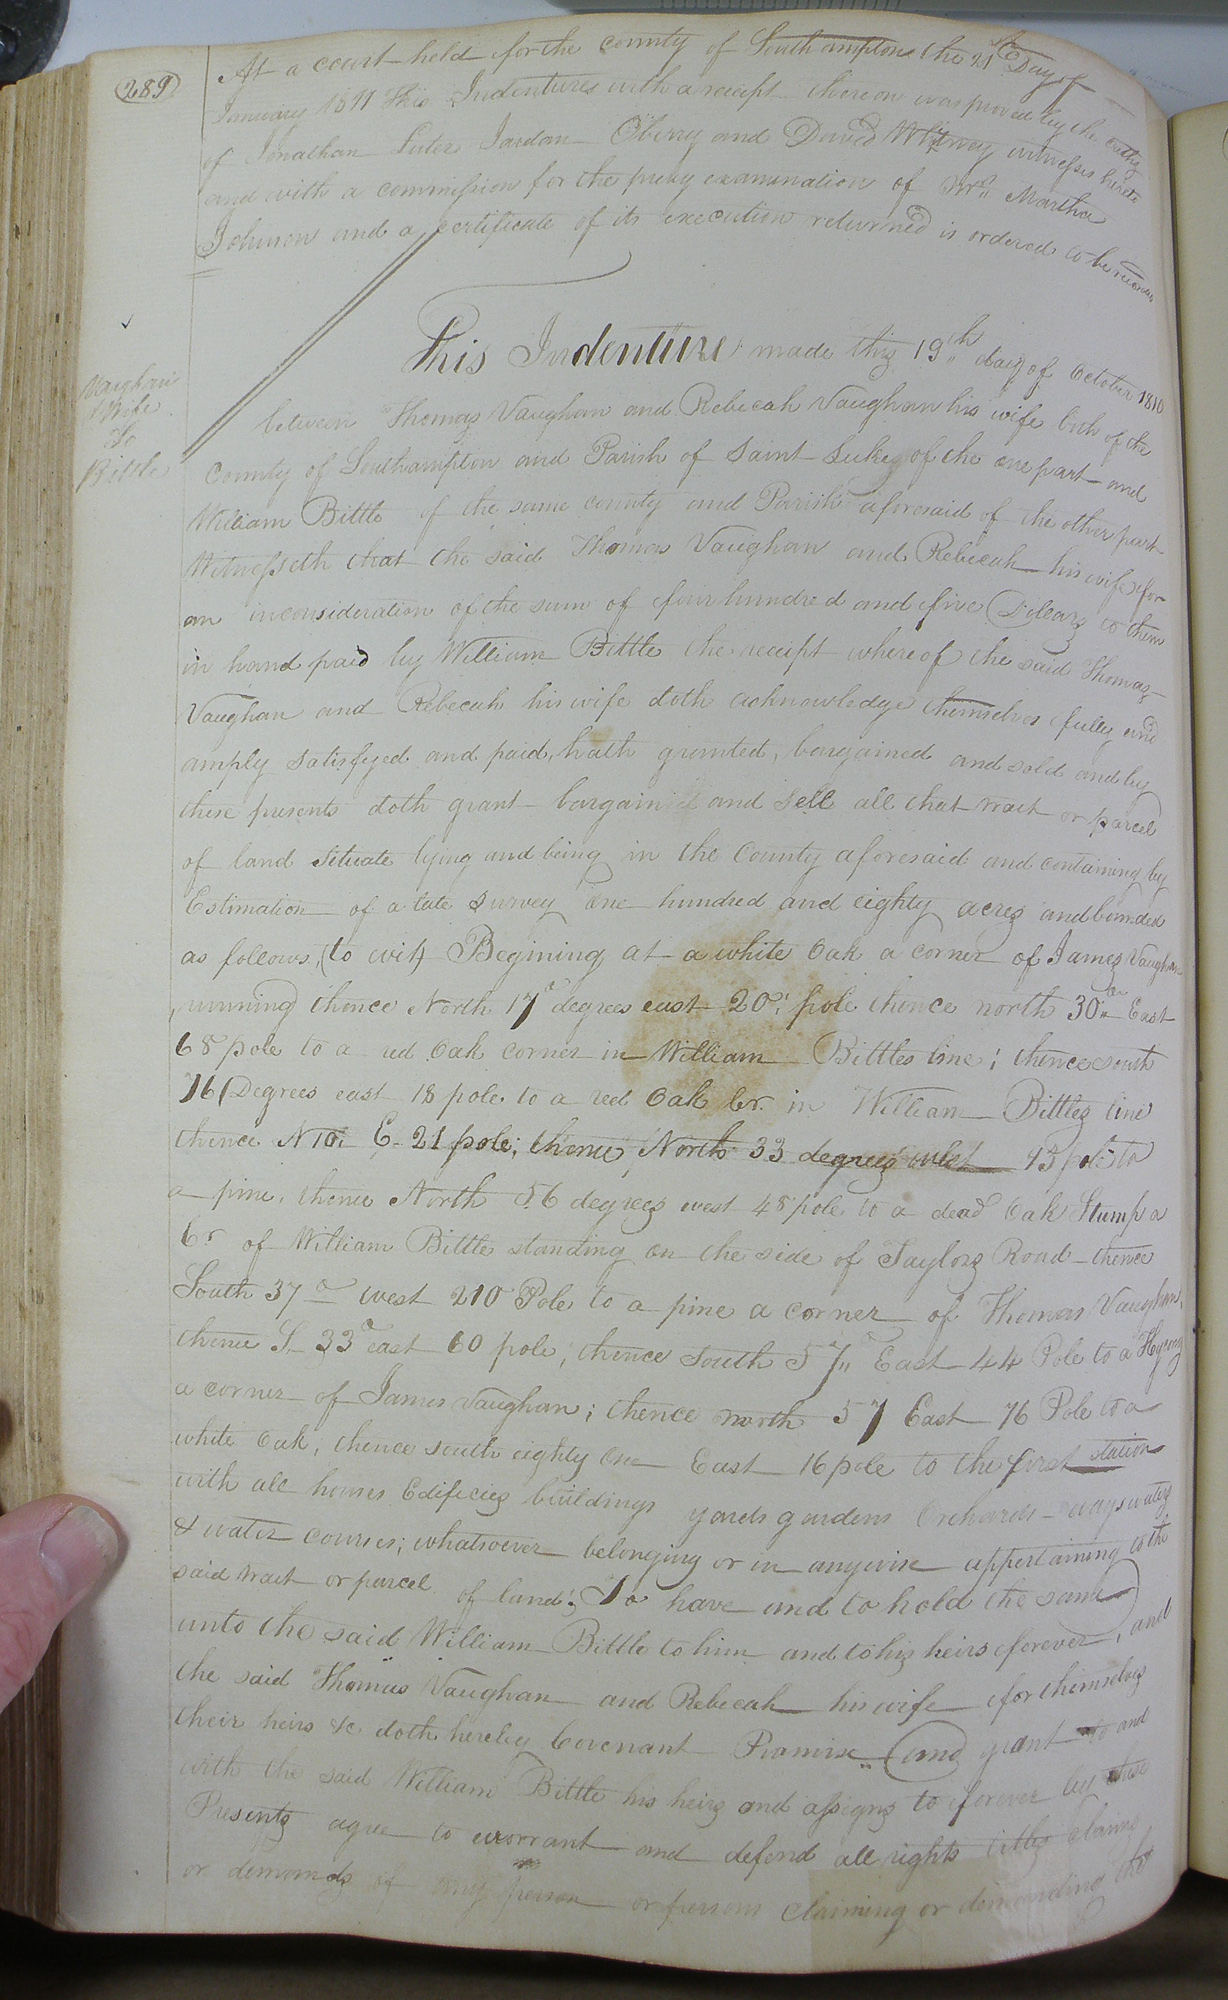 289
At a court held for the county of Southampton the 21st Day of
January 1811 This Indenture with a receipt thereon was proved by the oaths
of Jonathan Luter Jordan Oberry and David Whitney witnesses hereto
and with a commission for the privy examination of Mrs. Martha
Johnson and a certificate of its execution returned is ordered to be recorded
Vaughan
& Wife
To
Bittle
This Indenture made this 19th day of October 1810
between Thomas Vaughan and Rebecah Vaughan his wife both of the
County of Southampton and Parish of Saint Lukes of the one part and
William Bittle of the same county and Parish aforesaid of the other part
Witnesseth that the said Thomas Vaughan and Rebecah his wife for
an inconsideration of the sum of four hundred and five Dollars to them
in hand paid by William Bittle the receipt whereof the said Thomas
Vaughan and Rebecah his wife doth acknowledge themselves fully and
amply satisfyed and paid, hath granted, bargained and sold and by
these presents doth grant bargain and sell all that tract or parcel
of land situate lying and being in the County aforesaid and containing by
Estimation of a late survey one hundred and eighty acres and bounded
as follows, (to wit) Begining at a white Oak a corner of James Vaughan
running thence North 17° degrees east 20 pole thence north 30 East
68 pole to a red Oak corner in William Bittles line; thence south
76 Degrees east 18 pole to a red Oak Cr. in William Bittles line
thence N 10 E. 21 pole; thence North 33 degrees west 43 pole to
a pine, thence North 56 degrees west 48 pole to a dead Oak Stump a
Cr of William Bittle standing on the side of Taylors Road thence
South 37° west 210 Pole to a pine a corner of Thomas Vaughan,
thence S. 33° east 60 pole; thence South 57° East 44 Pole to a
a corner of James Vaughan; thence north 57 East 76 Pole to a
white Oak, thence south eighty One East 16 pole to the first station
with all houses Edificies buildings yards gardens Orchards ways waters
& water courses; whatsoever belonging or in anywise appertaining to the
said tract or parcel of land; To have and to hold the same
unto the said William Bittle to him and to his heirs forever, and
the said Thomas Vaughan and Rebecah his wife for themselves
their heirs &c doth hereby Covenant Promise (and) grant to and
with the said William Bittle his heirs and assigns to forever by these
Presents agree to worrant and defend all rights titles claims
or demands of any person or persons claiming or demanding that